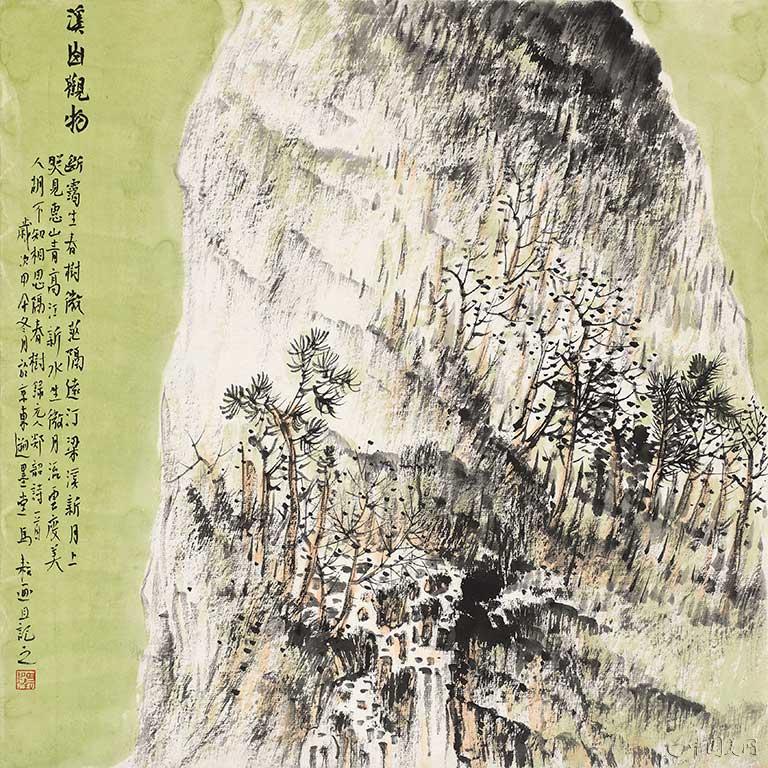 溪山觀物
断靄生春樹微茫隔遠汀梁溪新月上
見惠山青高江新水生微月澹雲度美
人胡不知相思隔春樹錄元人郑韶詩二首
歲次甲午冬月於京東墨堂馬畫且記之